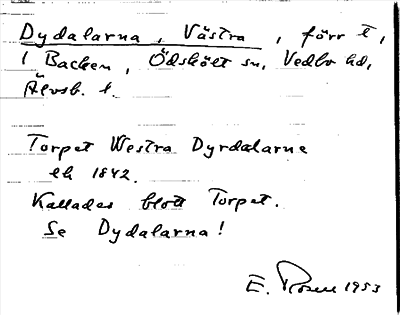 Dydalarna, Västra, förr t,
i Backen, Ödskölt sn, Vedbo hd,
Älvsb. l.
Torpet Westra Dyrdalarne
lh 1842.
Kallades blott Torpet.
Se Dydalarna!
E. Rosell 1953